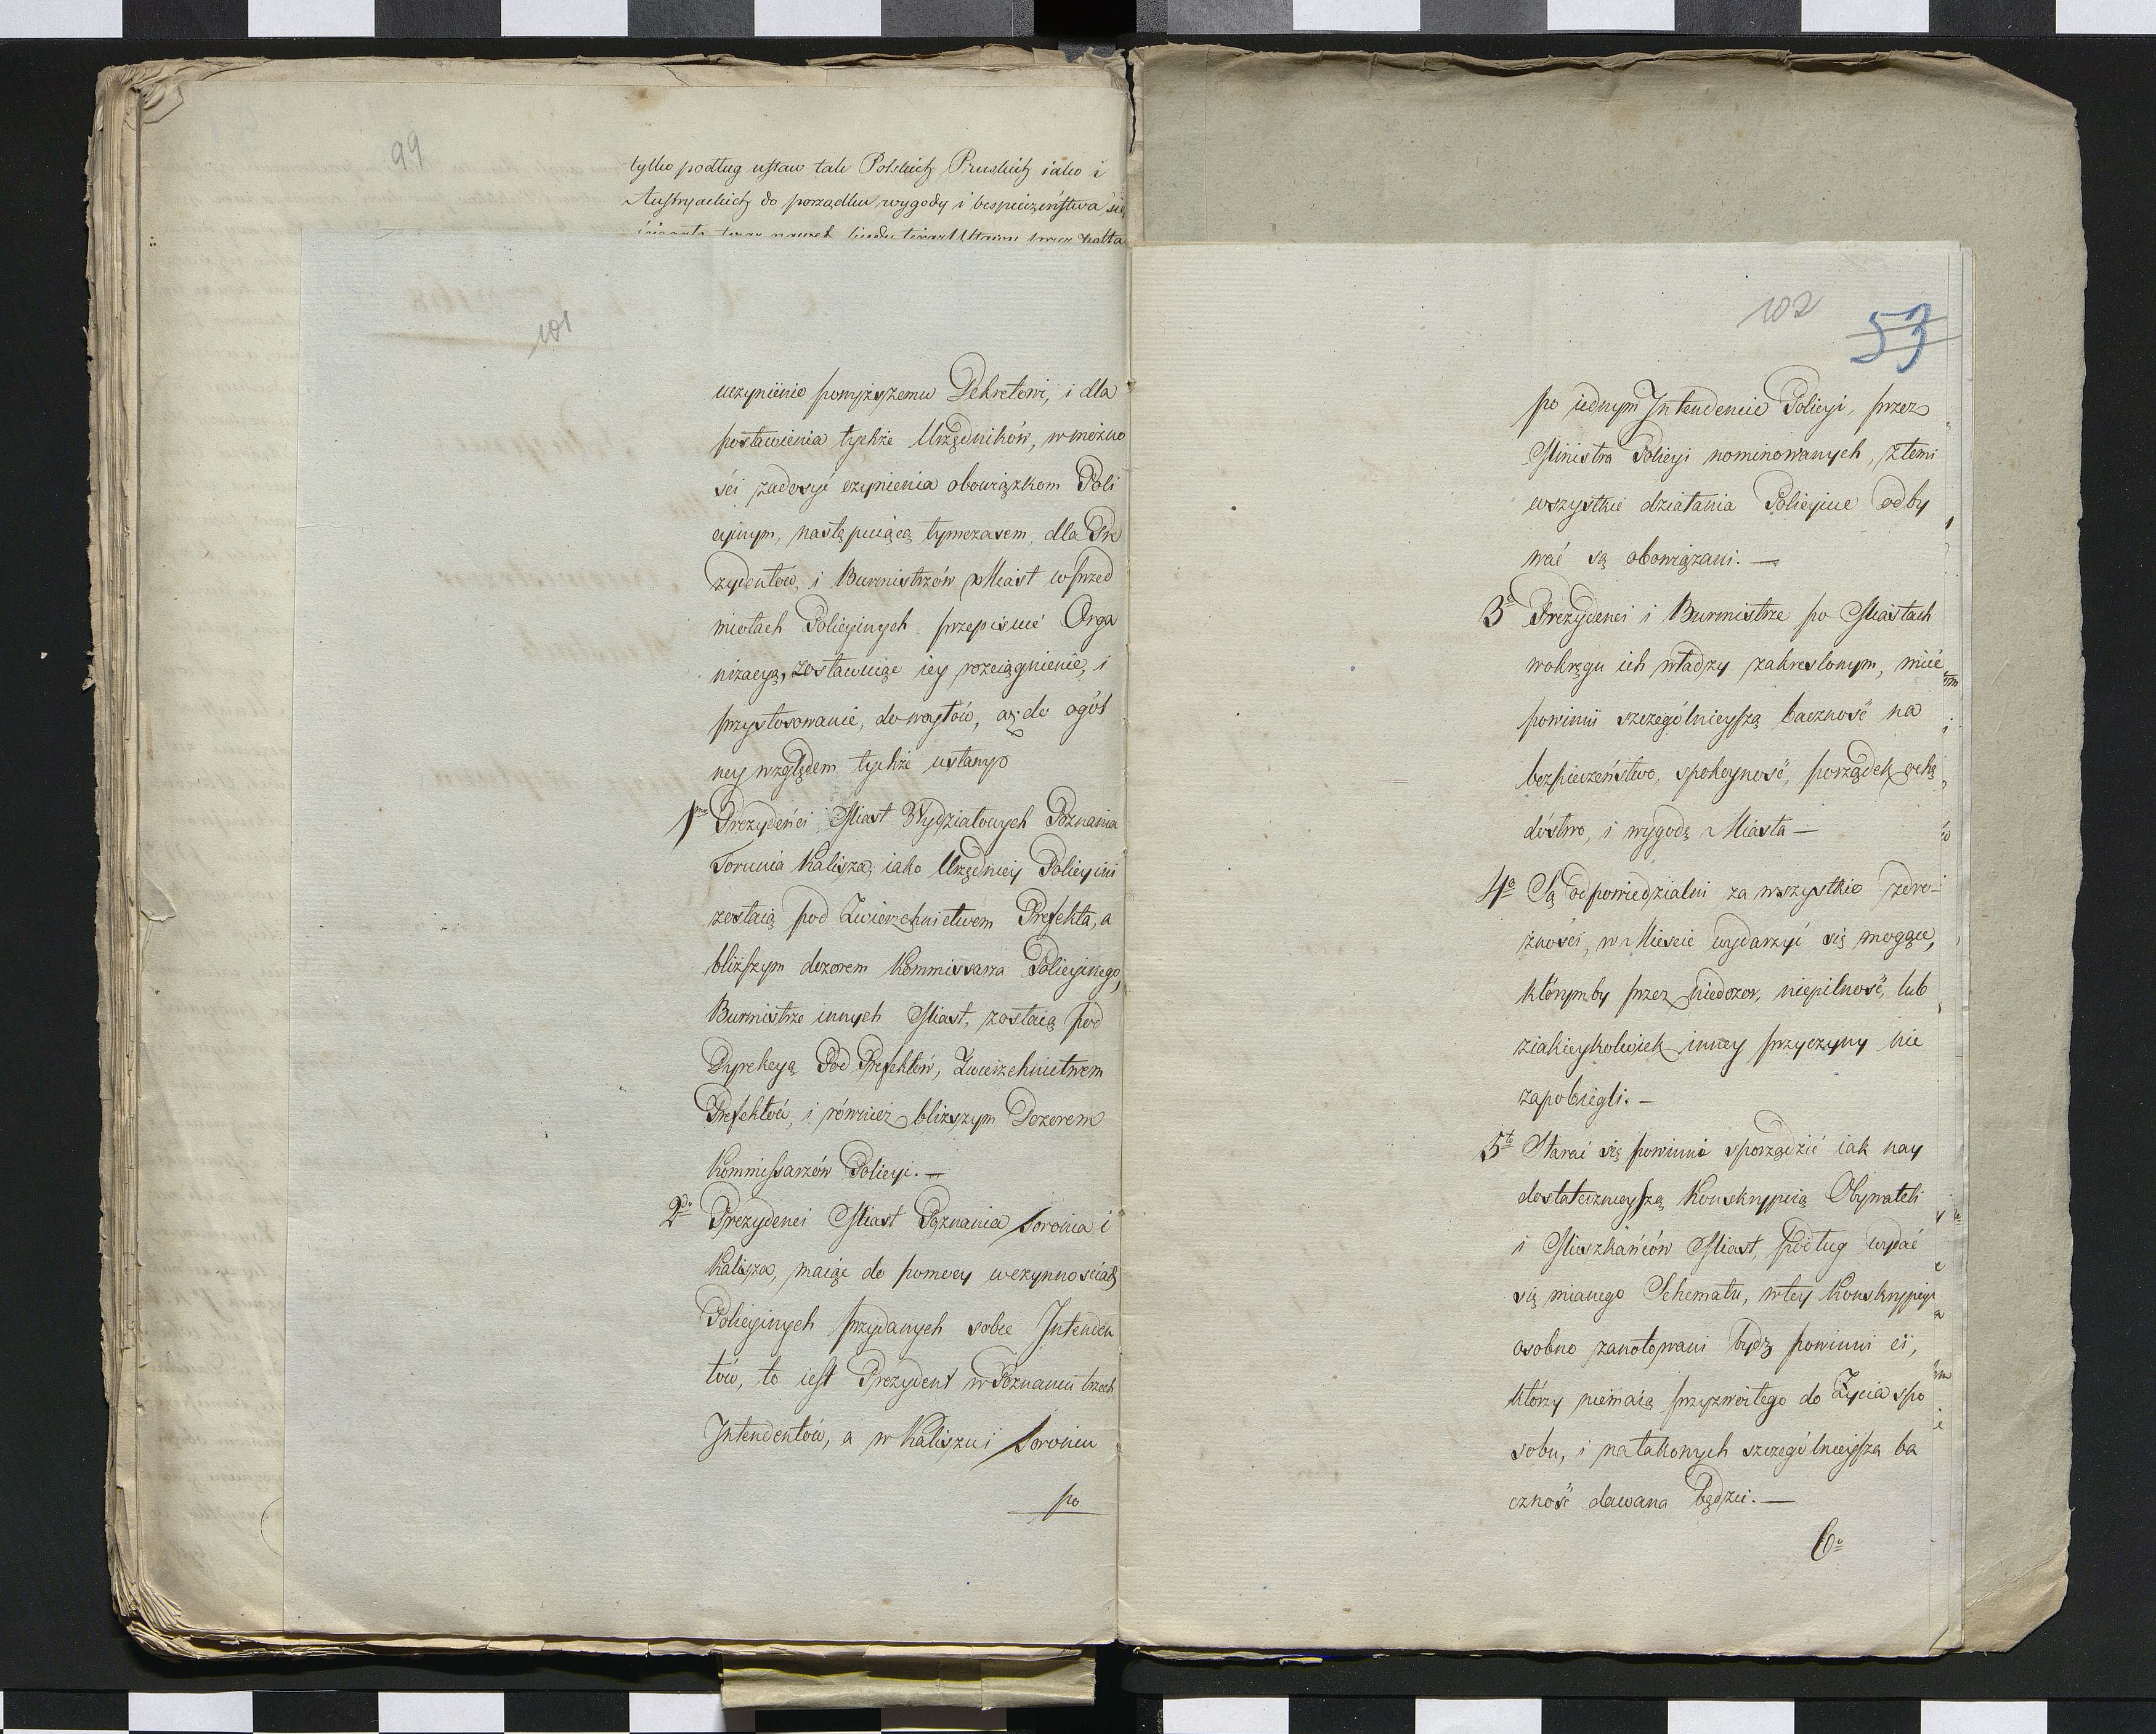 99
tylko podług ustaw tak Polskich Pruskich iako i
Austryackich do porządku wygody i bespieczeństwa się
101
uczynienie powyższemu Dekretowi, i dla
postawienia tychże Urzędników, w możno
ści zadosyć czynienia obowiązkom Poli
cyinym, następuiącą tymczasem, dla Pre
zydentów, i Burmistrzów Miast w przed
miotach Policyinych przepisuie Orga
nizacyą, zostawuiąc iey rozciągnienie, i
przystosowanie, do woytów, aż do ogól
ney względem tychże ustawy
1mo Prezydenci Miast Wydziałowych Poznania
Torunia Kalisza, iako Urzędnicy Policyini
zostaią pod Zwierzchnictwem Prefekta, a
bliższym dozorem Kommissarza Policyinego,
Burmistrze innych Miast, zostaią pod
Dyrekcyą Pod Prefektów, Zwierzchnictwem
Prefektów, i również bliższym Dozorem
Kommissarzów Policyi. —
2do Prezydenci Miast Poznania Torunia i
Kalisza, maiąc do pomocy w czynnościach
Policyinych przydanych sobie Intenden
tów, to iest Prezydent w Poznaniu trzech
Intendentów, a w Kaliszu i Toruniu
po
102
53
po iednym Intendencie Policyi, przez
Ministra Policyi nominowanych, z temi
wszystkie działania Policyine odby
wać są obowiązani. —
3o Prezydenci i Burmistrze po Miastach
w okręgu ich władzy zakreslonym, mieć
powinni szczególnieyszą baczność na
bezpieczeństwo, spokoyność, porządek, ochę
dóstwo, i wygodę Miasta —
4o Są odpowiedzialni za wszystkie zdro-
żności, w Miescie wydarzyć się mogące,
którymby przez niedozor, niepilność, lub
z iakieykolwiek inney przyczyny nie
zapobiegli. —
5to Starać się powinni sporządzić iak nay
dostatecznieyszą Konskrypcią Obywateli
i Mieszkańców Miast, podług wydać
się mianego Schematu, w tey Konskrypcyi
osobno zanotowani bydź powinni ci,
którzy niemaią przyzwoitego do Życia spo
sobu, i na takowych szczególnieysza ba
czność dawana będzie. —
6o